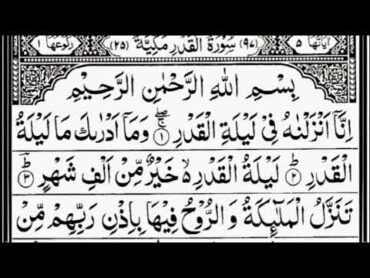 اٰیاتہا ۵ (۹۷) سُوْرَةُ الْقَدْرِ مَكِّيَّةٌ (۲۵) رکوعہا ۱
بِسْمِ اللّٰهِ الرَّحْمٰنِ الرَّحِيْمِ
اِنَّاۤ اَنْزَلْنٰهُ فِىْ لَيْلَةِ الْقَدْرِ ۚۖ ۝۱ وَمَاۤ اَدْرٰىكَ مَا لَيْلَةُ
الْقَدْرِ ؕ ۝۲ لَيْلَةُ الْقَدْرِ ۙ خَيْرٌ مِّنْ اَلْفِ شَهْرٍ ؕ ۝۳
تَنَزَّلُ الْمَلٰٓئِكَةُ وَالرُّوْحُ فِيْهَا بِاِذْنِ رَبِّهِمْ مِّنْ